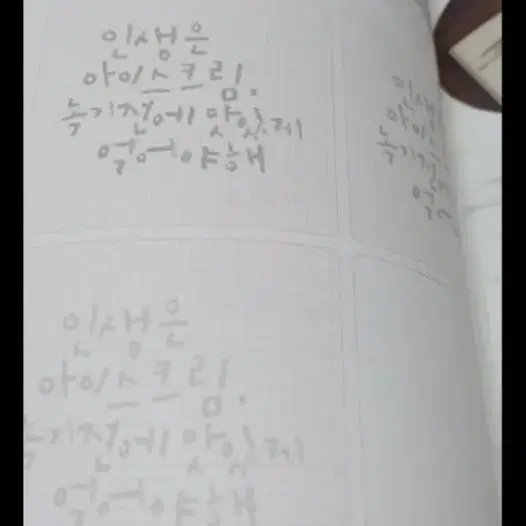 인생은
아이스크림.
녹기전에 맛있게
먹어야해
인생
아이
녹기
인생은
아이스크림.
녹기전에 맛있게
먹어야해